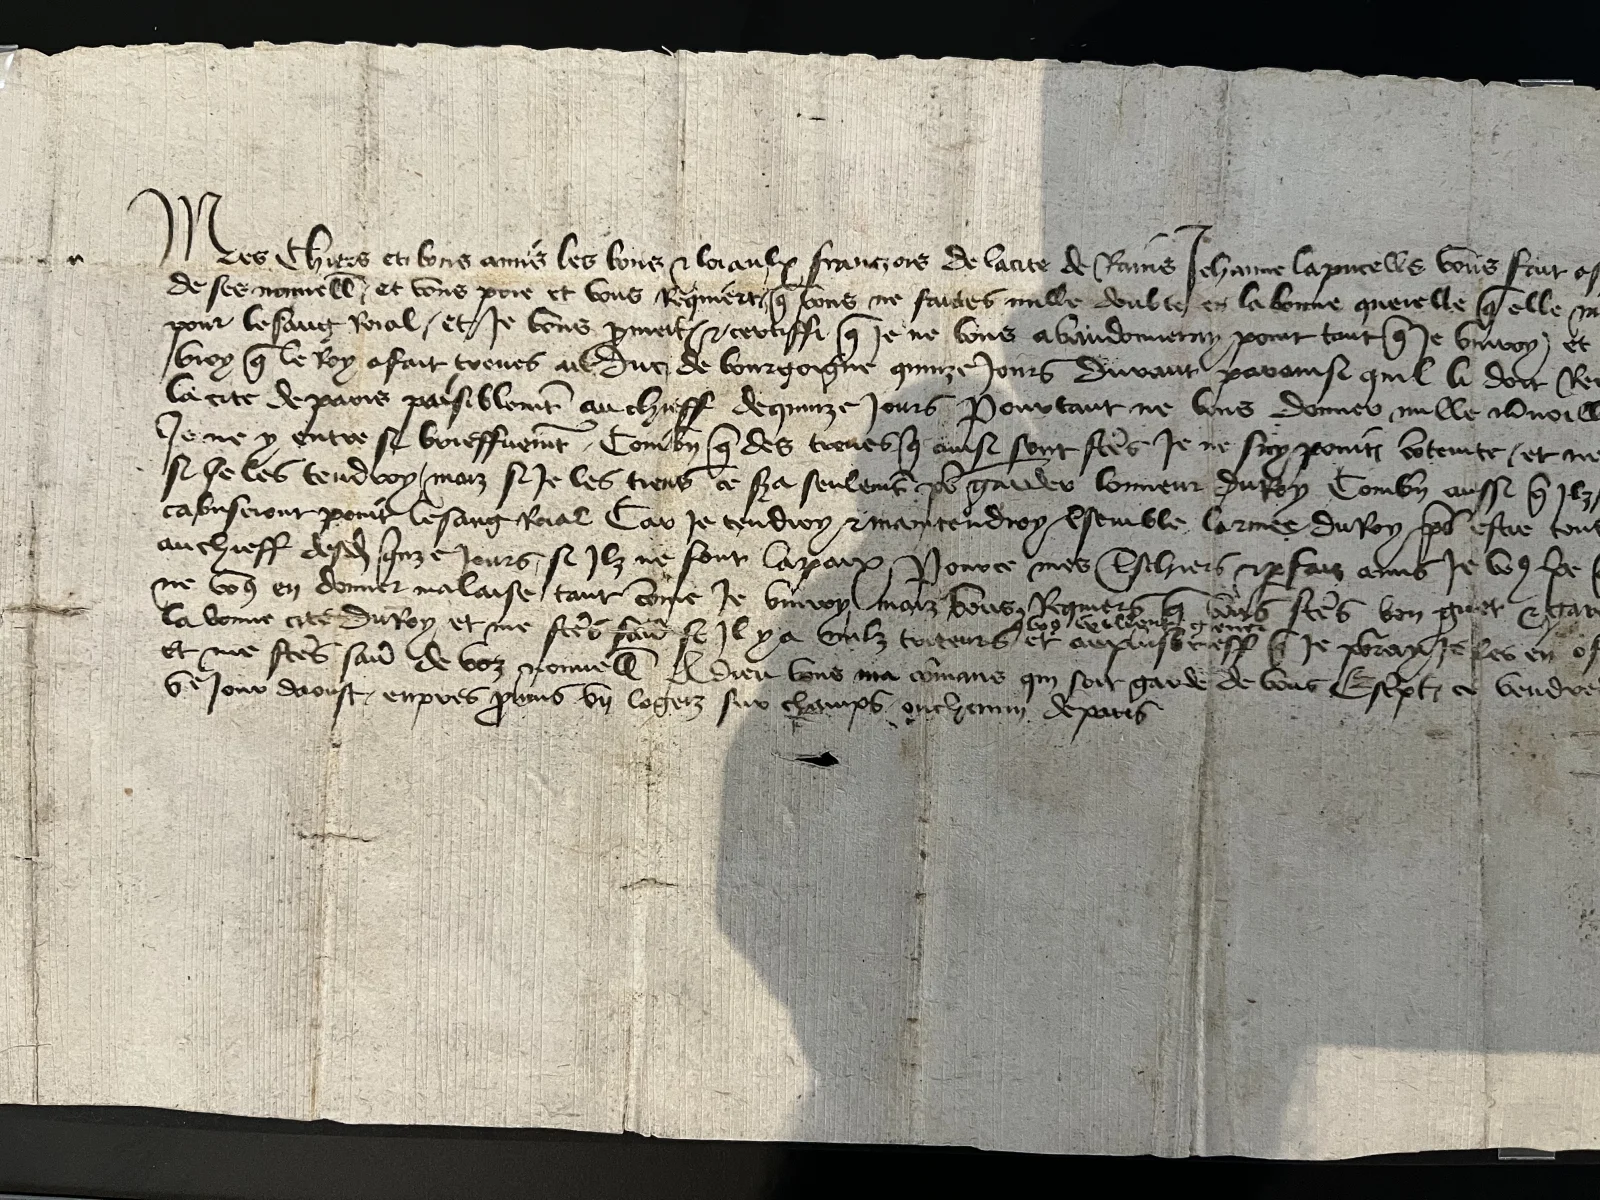 Mes chiers et bons amis les bons et loiaulx franczois de la cite de Rains Jehanne la pucelle vous fait
de ses nouvell et vous prie et vous requiert q vous ne faictes nulle doubte en la bonne querelle q elle
pour le sang Roial et Je vous promect et certiffi q Je ne vous abandonneray point tant q Je vivroy et
vroy q le Roy a fait treves au duc de bourgoigne quinze Jours durant par ainsi quil li doit
la cite de paris paisiblemt au chieff de quinze Jours Pourtant ne vous donner nulle
Je ne y entre si brieffvemt Combn q des treves q ainsi sont ftes Je ne suy point cotente et ne
si Je les tendroy maiz si Je les tiens ce sra seulemt pr garder lonneur du Roy Combn aussi q Ilz
cabuseront point le sang Roial Car Je tendroy et maintendroy esemble larmee du Roy pr estre
au chieff desd qnze Jours si Ilz ne font la paix Pource mes tschiers et pfaiz amis Je vos pe
ne vos en donner malaise tant come Je vivroy maiz vous Requiers q vous ftes bon guet et
la bonne cite du Roy et me ftes savr se Il y a nulz triteurs q vos veullent grever et au plus brieff q Je porray Je les en
et me ftes savr de voz nouvell A dieu vous ma comans qui soit garde de vous Escpt ce
Ve Jour daoust enpres provins un logeiz sur champs ou chemin de paris